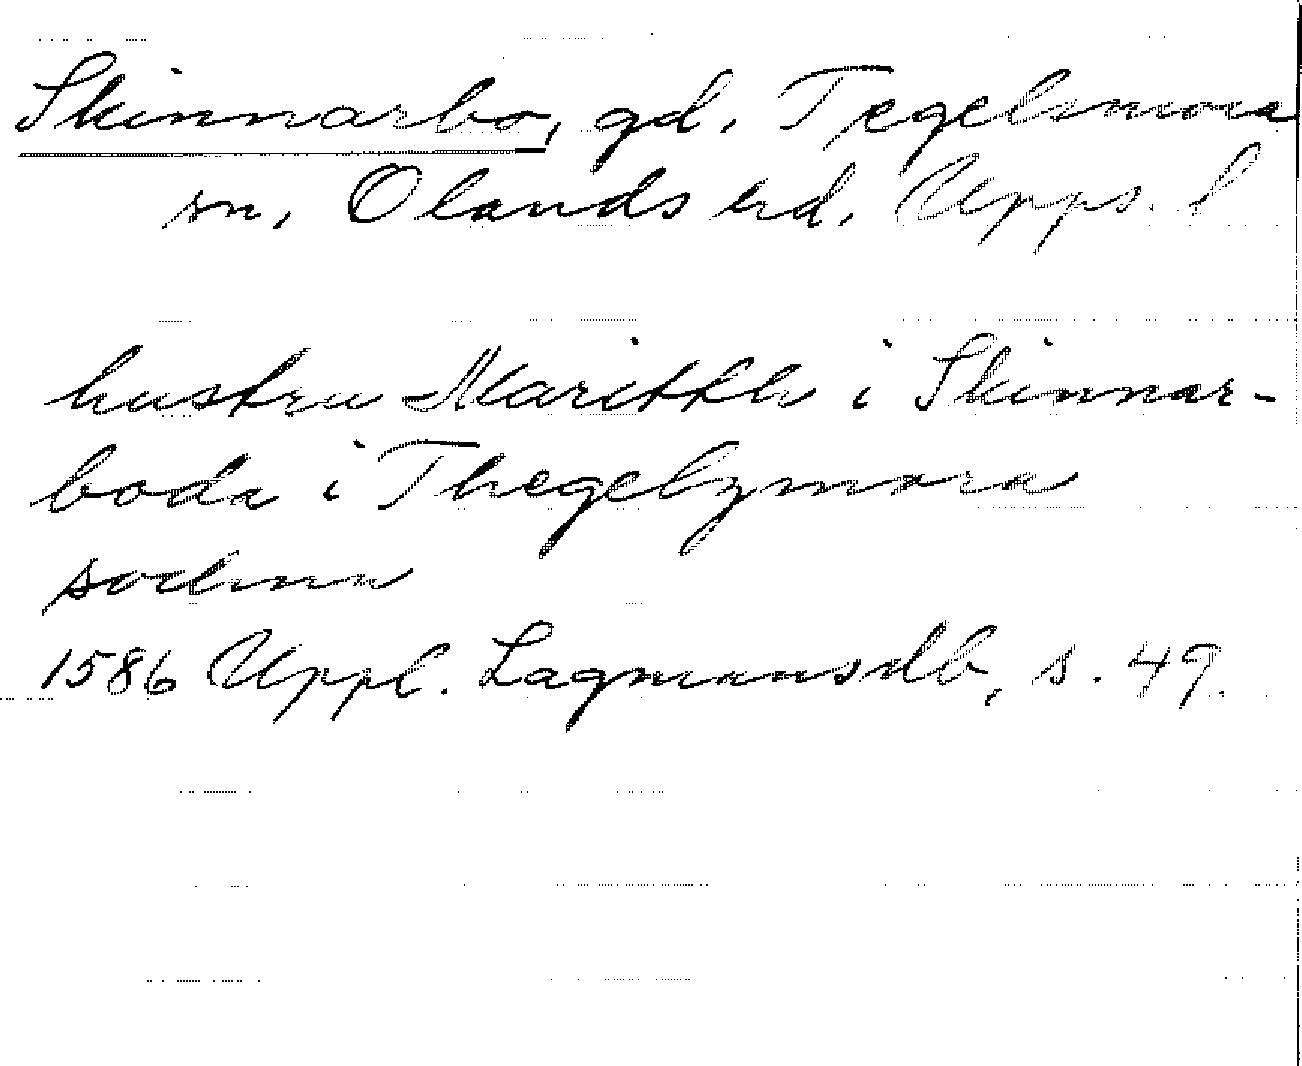 Skinnarbo, gd, Tegelsmora
sn, Olands hd, Upps. l
hustru Maritth i Skinnar-
boda i Thegelzmora
sochnn
1586 Uppl. Lagmansdb, s. 49.